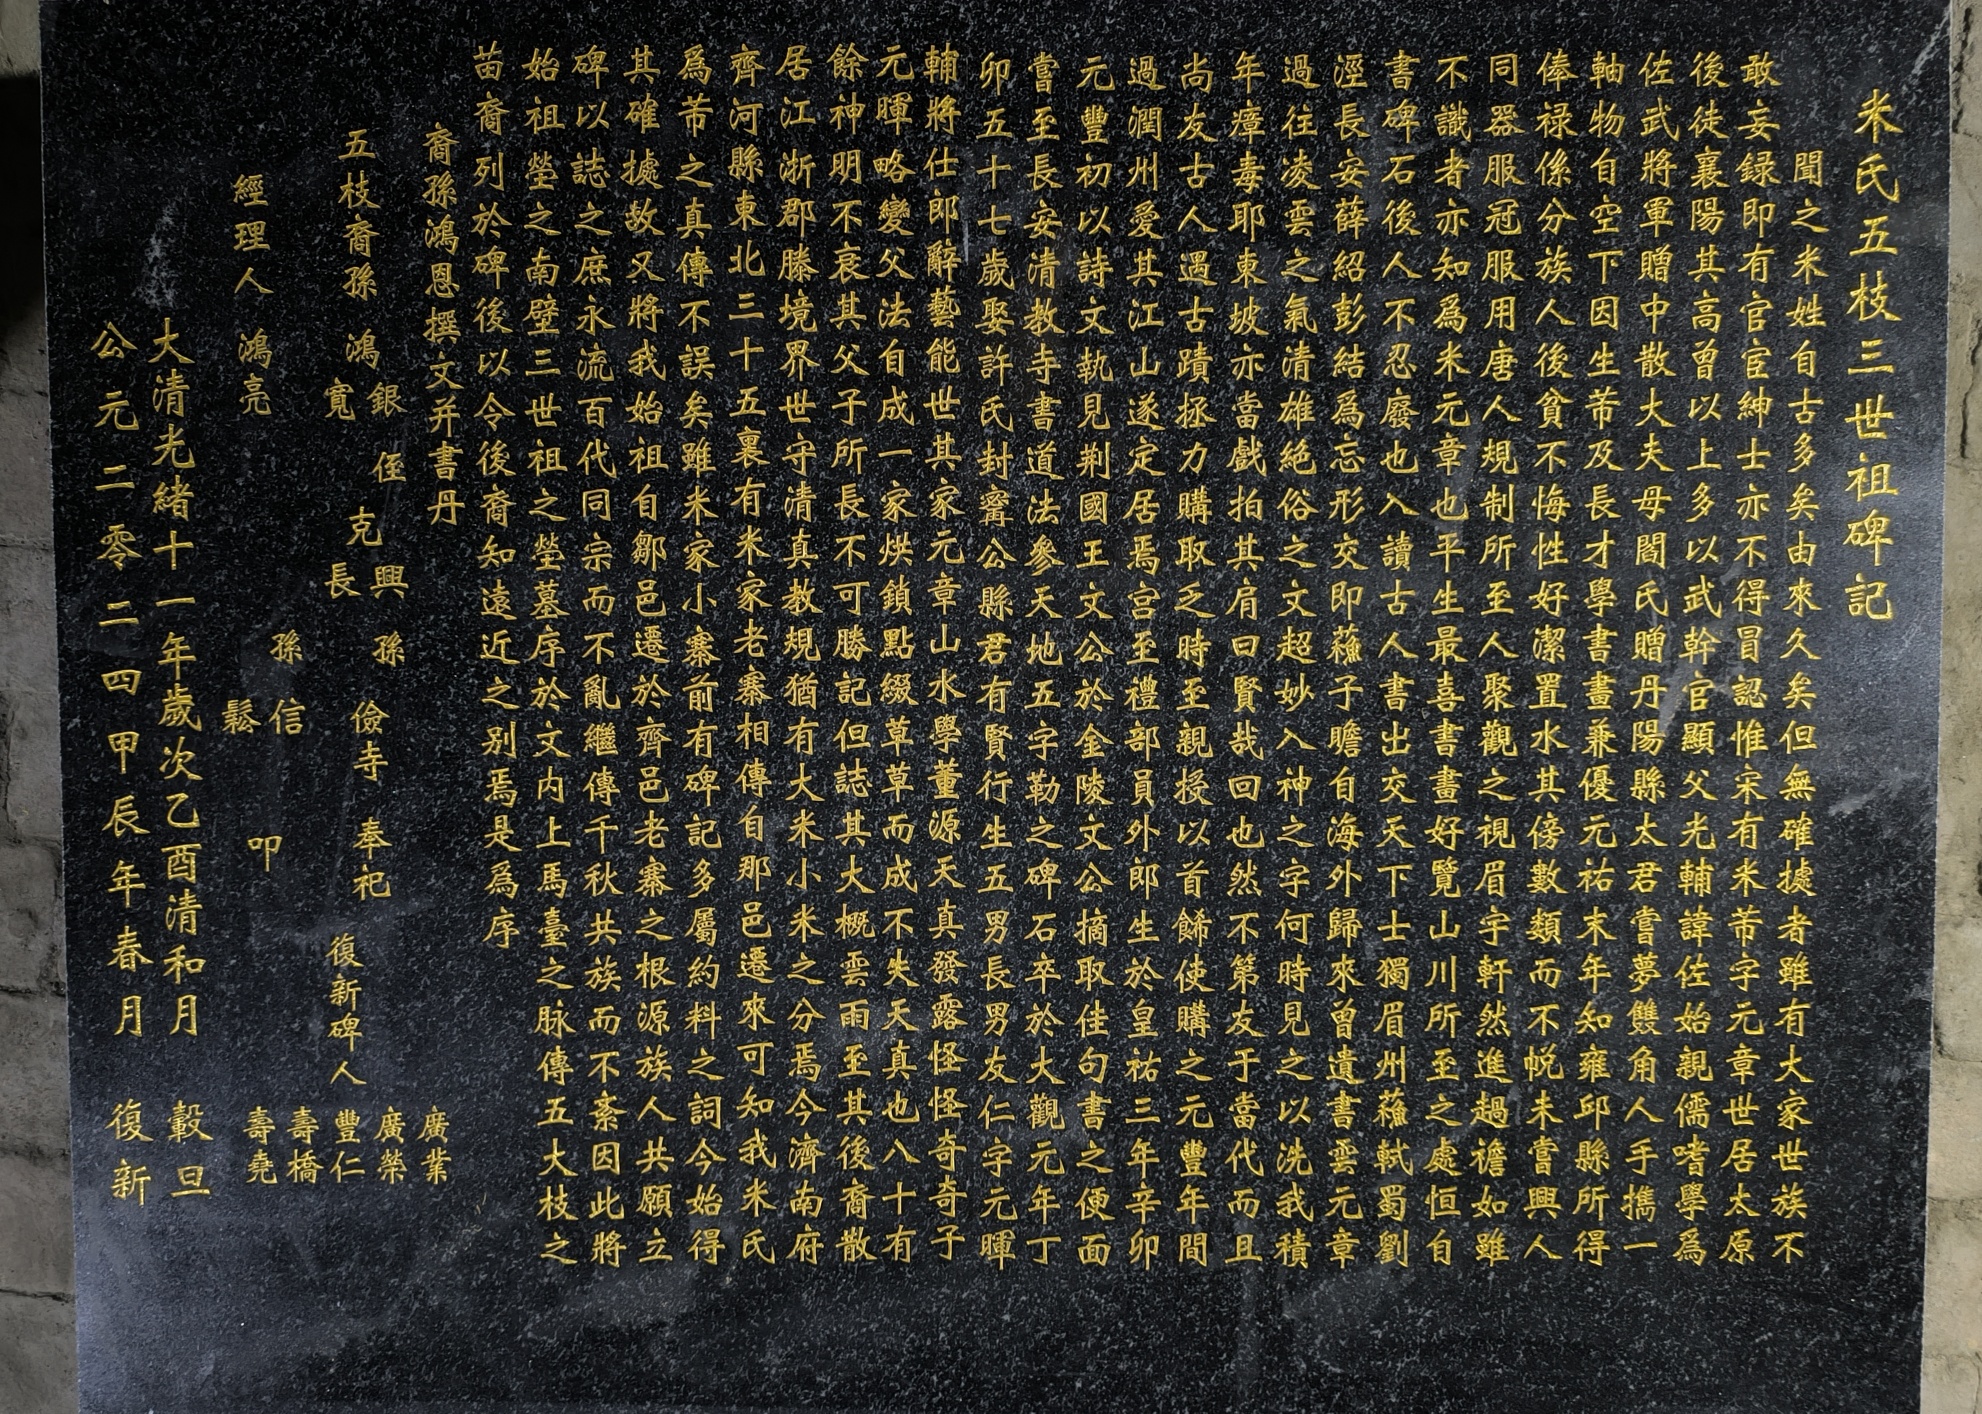 米氏五枝三世祖碑記
聞之米姓自古多矣由來久矣但無確據者雖有大家世族不
敢妄録即有官宦紳士亦不得冒認惟宋有米芾字元章世居太原
後徒襄陽其高曾以上多以武幹官顯父光輔諱佐始親儒嗜學爲
佐武將軍贈中散大夫母閻氏贈丹陽縣太君嘗夢雙角人手擕一
軸物自空下因生芾及長才學書畫兼優元祐末年知雍邱縣所得
俸禄係分族人後貧不悔性好潔置水其傍數類而不帨未嘗興人
同器服冠服用唐人規制所至人聚觀之視眉宇軒然進趨襜如雖
不識者亦知爲米元章也平生最喜書畫好覽山川所至之處恒自
書碑石後人不忍廢也入讀古人書出交天下士獨眉州蘓軾蜀劉
涇長安薛紹彭結爲忘形交即蘓子瞻自海外歸來曾遺書雲元章
過往凌雲之氣清雄絶俗之文超妙入神之字何時見之以洗我積
年瘴毒耶東坡亦當戲拍其肩曰賢哉回也然不第友于當代而且
尚友古人遇古蹟拯力購取乏時至親授以首餙使購之元豐年間
過潤州愛其江山遂定居焉宫至禮部員外郎生於皇祐三年辛卯
元豐初以詩文執見荆國王文公於金陵文公摘取佳句書之便面
嘗至長安清教寺書道法參天地五字勒之碑石卒於大觀元年丁
卯五十七歲娶許氏封寗公縣君有賢行生五男長男友仁字元暉
輔將仕郎辭藝能世其家元章山水學董源天真發露怪怪奇奇子
元暉略變父法自成一家烘鎖點綴草草而成不失天真也八十有
餘神明不衰其父子所長不可勝記但誌其大概雲雨至其後裔散
居江浙郡滕境界世守清真教規猶有大米小米之分焉今濟南府
齊河縣東北三十五裏有米家老寨相傳自那邑遷來可知我米氏
爲芾之真傳不誤矣雖米家小寨前有碑記多屬約料之詞今始得
其確據故又將我始祖自鄒邑遷於齊邑老寨之根源族人共願立
碑以誌之庶永流百代同宗而不亂繼傳千秋共族而不紊因此將
始祖塋之南壁三世祖之塋墓序於文内上馬臺之脉傳五大枝之
苗裔列於碑後以令後裔知遠近之别焉是為序
裔孫鴻恩撰文并書丹
五枝裔孫 鴻 銀 寬 侄 克 興 長 孫 儉寺 奉祀
經理人 鴻亮 孫 信 鬆 叩
復新碑人 廣業 廣榮 豐仁 壽橋 壽堯
大清光緒十一年歲次乙酉清和月 穀旦
公元二零二四甲辰年春月 復新